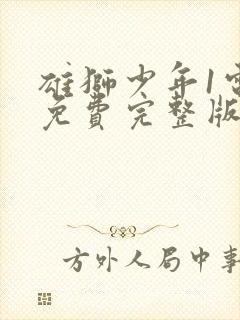 雄獅少年1電
免費完整版
方外人局中事